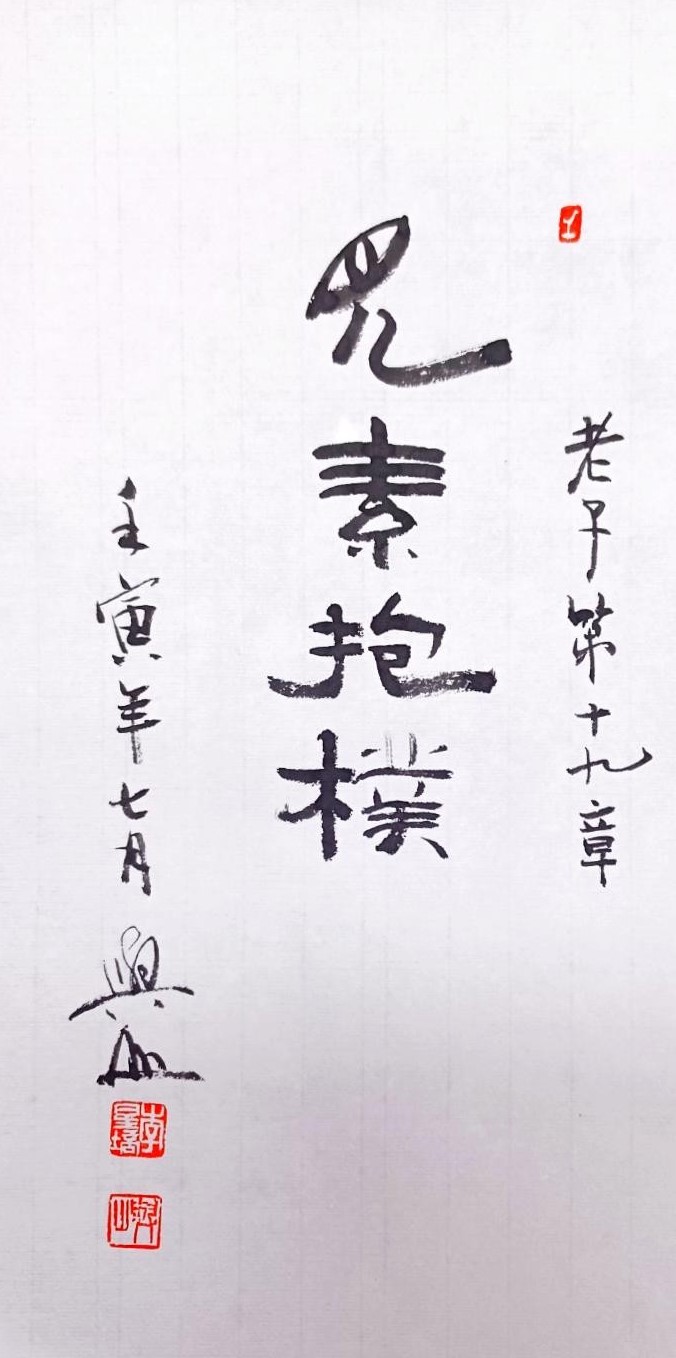 老子第十九章
見素抱樸
壬寅年七月